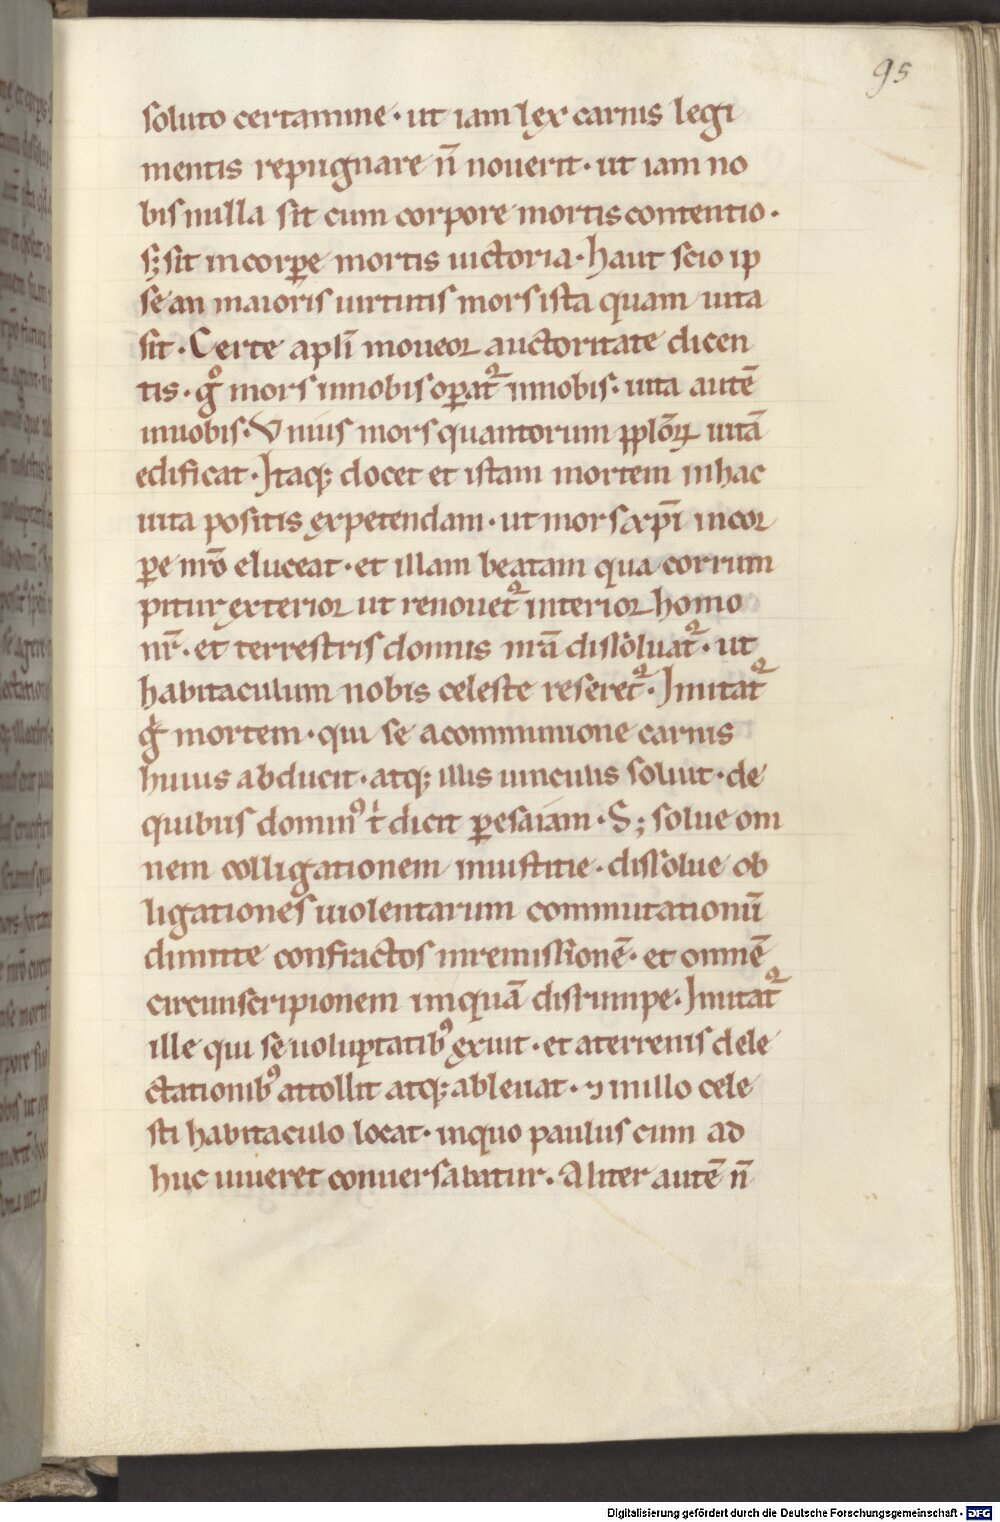 95
soluto certamine · ut iam lex carnis legi
mentis repugnare n̄ nouerit · ut iam no
bis nulla sit cum corpore mortis contentio ·
s; sit incorꝑe mortis uictoria · haut scio ip
se an maioris uirtutis mors ista quam uita
sit · Certe apl̄i moueor auctoritate dicen
tis · gͦ mors innobis oꝑat᷑ innobis · uita autē
inuobis · Vnius mors quantorum pplōꝝ uitā
edificat · Itaq; docet et istam mortem inhac
uita positis expetendam · ut mors xp̄i incor
ꝑe nr̄o eluceat · et illam beatam qua corrum
pitur exterior ut renouet᷑ interior homo
nr̄ · et terrestris domus nr̄a dissoluat᷑ · ut
habitaculum nobis celeste reseret᷑ · Imitat᷑
gͥ mortem · qui se acommunione carnis
huius abducit · atq; illis uinculis soluit · de
quibus dominꝰ t̓ dicit ꝑ esaiam · S; solue om
nem colligationem iniustitie · dissolue ob
ligationes uiolentarum commutationū
dimitte confractos inremissionē · et omnē
circunscripionem iniquā disrumpe · Imitat᷑
ille qui se uoluptatibꝰ exuit · et aterrenis dele
ctationibꝰ attollit atq; ableuat · ⁊ inillo cele
sti habitaculo locat · inquo paulus cum ad
huc uiueret conuersabatur · Aliter autē n̄
Digitalisierung gefördert durch die Deutsche Forschungsgemeinschaft · DFG